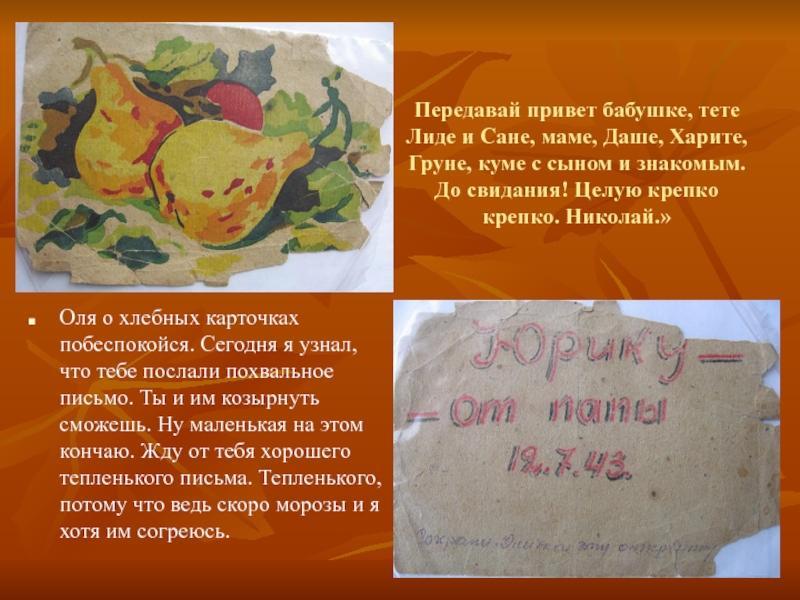 Передавай привет бабушке, тете
Лиде и Сане, маме, Даше, Харите,
Груне, куме с сыном и знакомым.
До свидания! Целую крепко
крепко. Николай.»
Оля о хлебных карточках
побеспокойся. Сегодня я узнал,
что тебе послали похвальное
письмо. Ты и им козырнуть
сможешь. Ну маленькая на этом
кончаю. Жду от тебя хорошего
тепленького письма. Тепленького,
потому что ведь скоро морозы и я
хотя им согреюсь.
Юрику —
— от папы
12.7.43.
Сохрани эту открытку